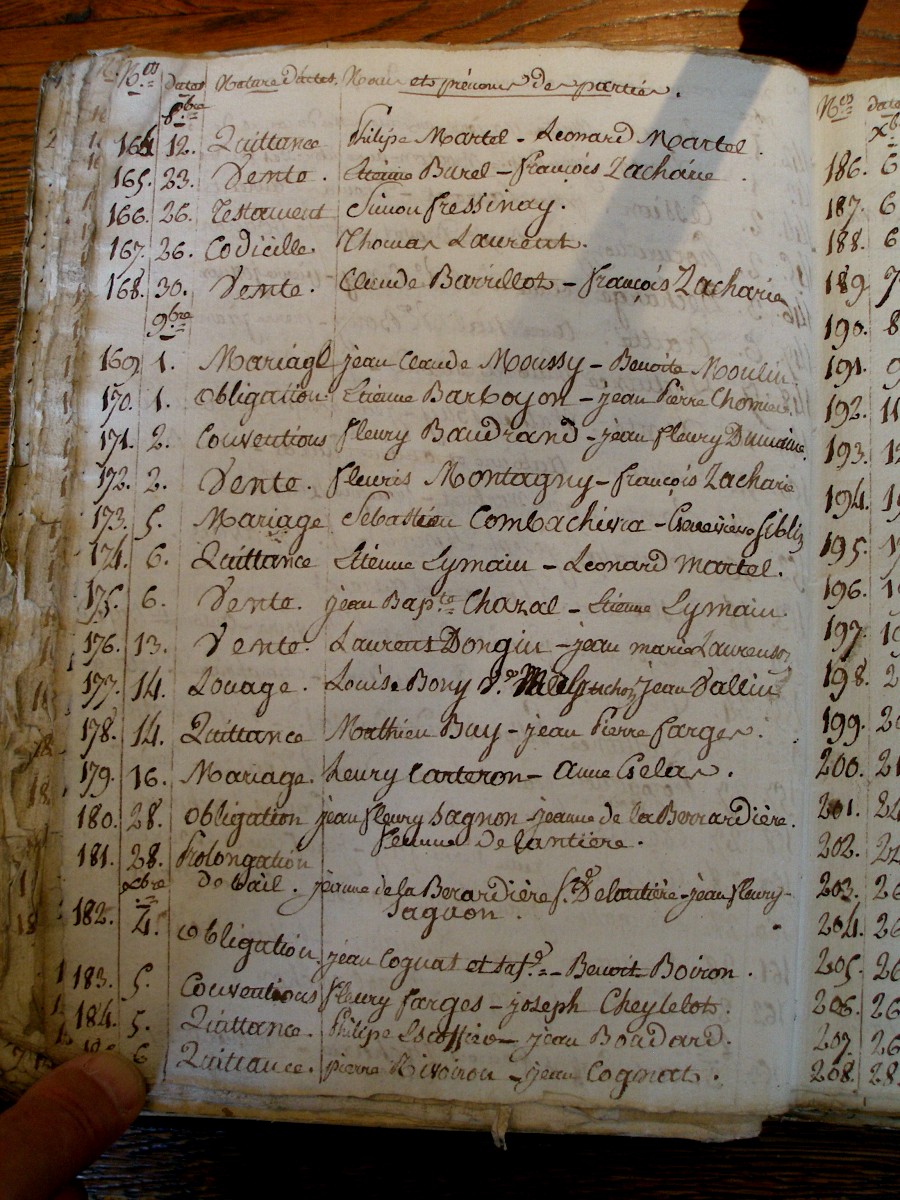 N.os dates Nature d'actes. Noms et prénoms des parties.
8.bre
164 12. Quittance Philipe Martel - Leonard Martel.
165. 23. Vente. Etienne Burel - françois Zacharie.
166. 26. Testament Simon fressinay.
167. 26. Codicille. Thomas Laurent.
168. 30. Vente. Claude Barrillot - françois Zacharie
9.bre
169 1. Mariage jean Claude Moussy - Benoite Moulin
170. 1. Obligation Etienne Barboyon - jean Pierre Chomier.
171. 2. Conventions fleury Baudrand - jean fleury Dumaine
172. 2. Vente. fleuris Montagny - françois Zacharie
173. 5. Mariage Sebastien Combachivra - Genevieve
174. 6. Quittance Etienne Lymain - Leonard Martel.
175. 6. Vente. jean Bap.te Chazal - Etienne Lymain.
176. 13. Vente. Laurent Dongin - jean marie Laurenson
177. 14. Louage. Louise Bony jean Vallin
178. 14. Quittance Mathieu Buy - jean Pierre farges.
179. 16. Mariage. henry Carteron - Anne Gelas.
180. 28. Obligation jean fleury Sagnon - jeanne de la Berrardière.
femme Delantiere.
181. 28. Prolongation
de bail. jeanne de la Berardière f.e Delantière - jean fleury-
Sagnon.
xbre
182. 4. Obligation. jean Cognat et sa f.e - Benoit Boiron.
183. 5. Conventions fleury farges - joseph Cheytelot.
184. 5. Quittance. Philipe Escoffier - jean Boudard.
6 Quittance. pierre Rivoiron - jean Cognat.
N.os dates
x.b
186. 6
187. 6
188. 6
189. 7
190. 8
191. 9
192. 11
193. 12
194. 1
195. 1
196. 1
197. 19
198. 2
199. 20
200. 21
201. 22
202. 22
203. 26
204. 26
205. 26
206. 26
207. 26
208. 28